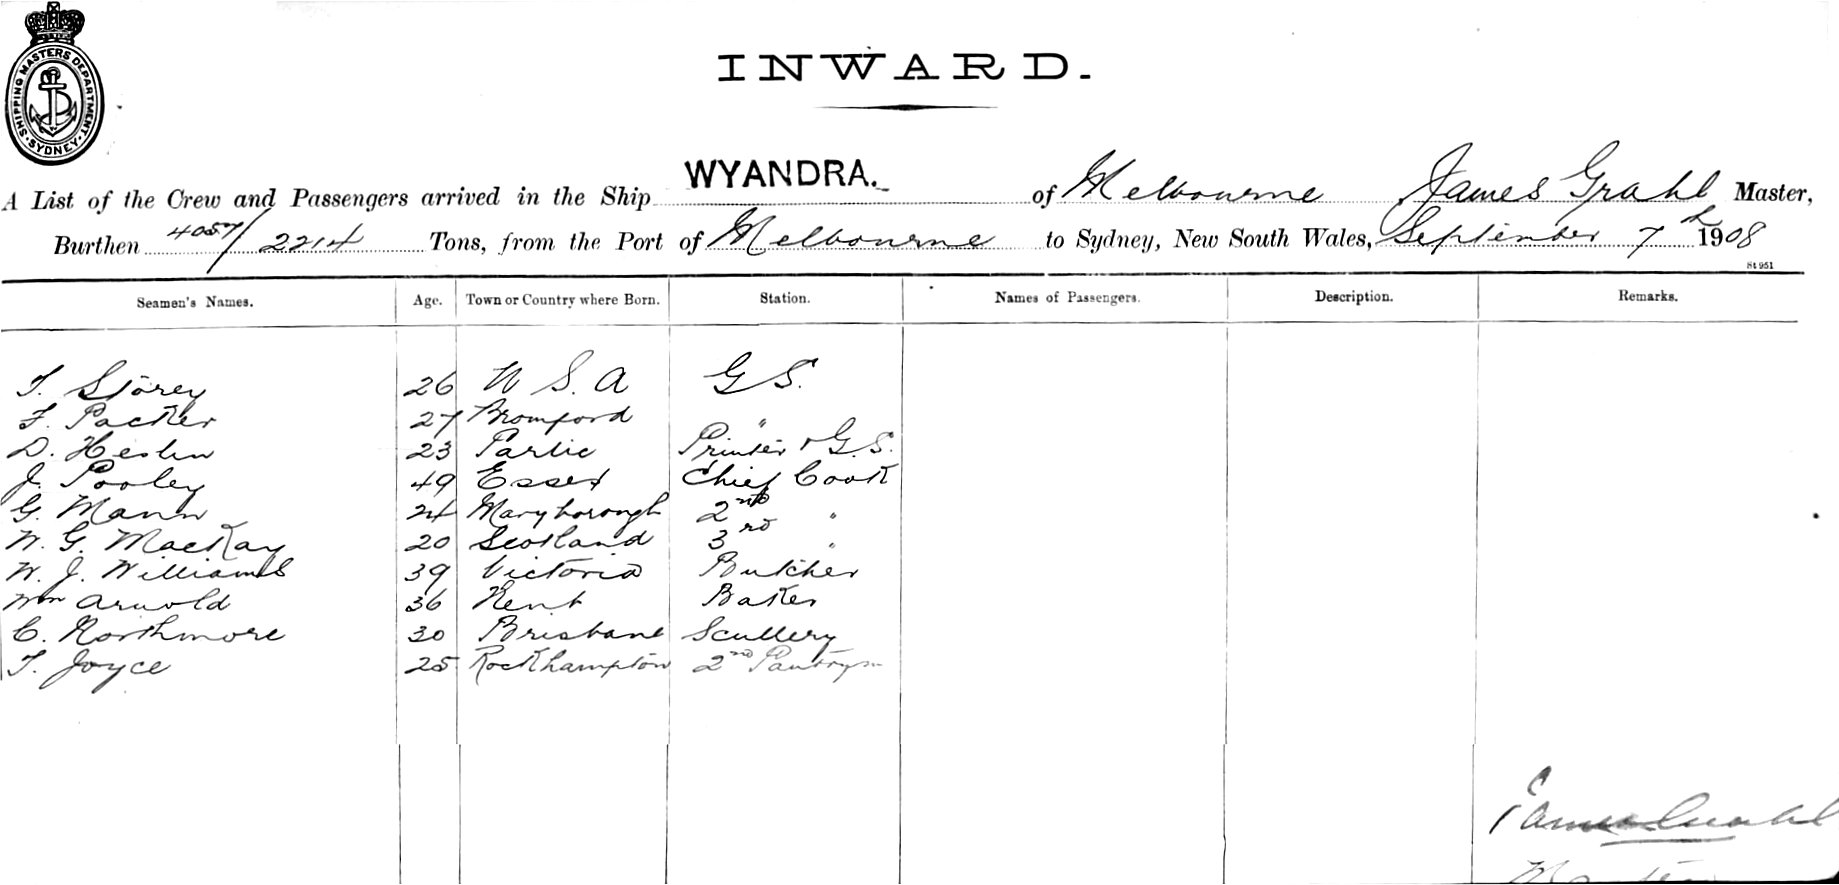 SHIPPING MASTERS DEPARTMENT · SYDNEY ·
INWARD.
A List of the Crew and Passengers arrived in the Ship WYANDRA. of Melbourne James Grahl Master,
Burthen 4057/2214 Tons, from the Port of Melbourne to Sydney, New South Wales, September 7th 1908
St 951
Seamen's Names. Age. Town or Country where Born. Station. Names of Passengers. Description. Remarks.
T. Storey 26 U S. A G S.
F. Packer 27 Bromford "
D. Heslin 23 Partic Printer & G.S.
J. Pooley 49 Essex Chief Cook
G. Mann 24 Maryborough 2nd "
W. G. MacKay 20 Scotland 3rd "
W. J. Williams 39 Victoria Butcher
Wm Arnold 36 Kent Baker
C. Northmore 30 Brisbane Scullery
T. Joyce 25 Rockhampton 2nd Pantrym
James Grahl
Master